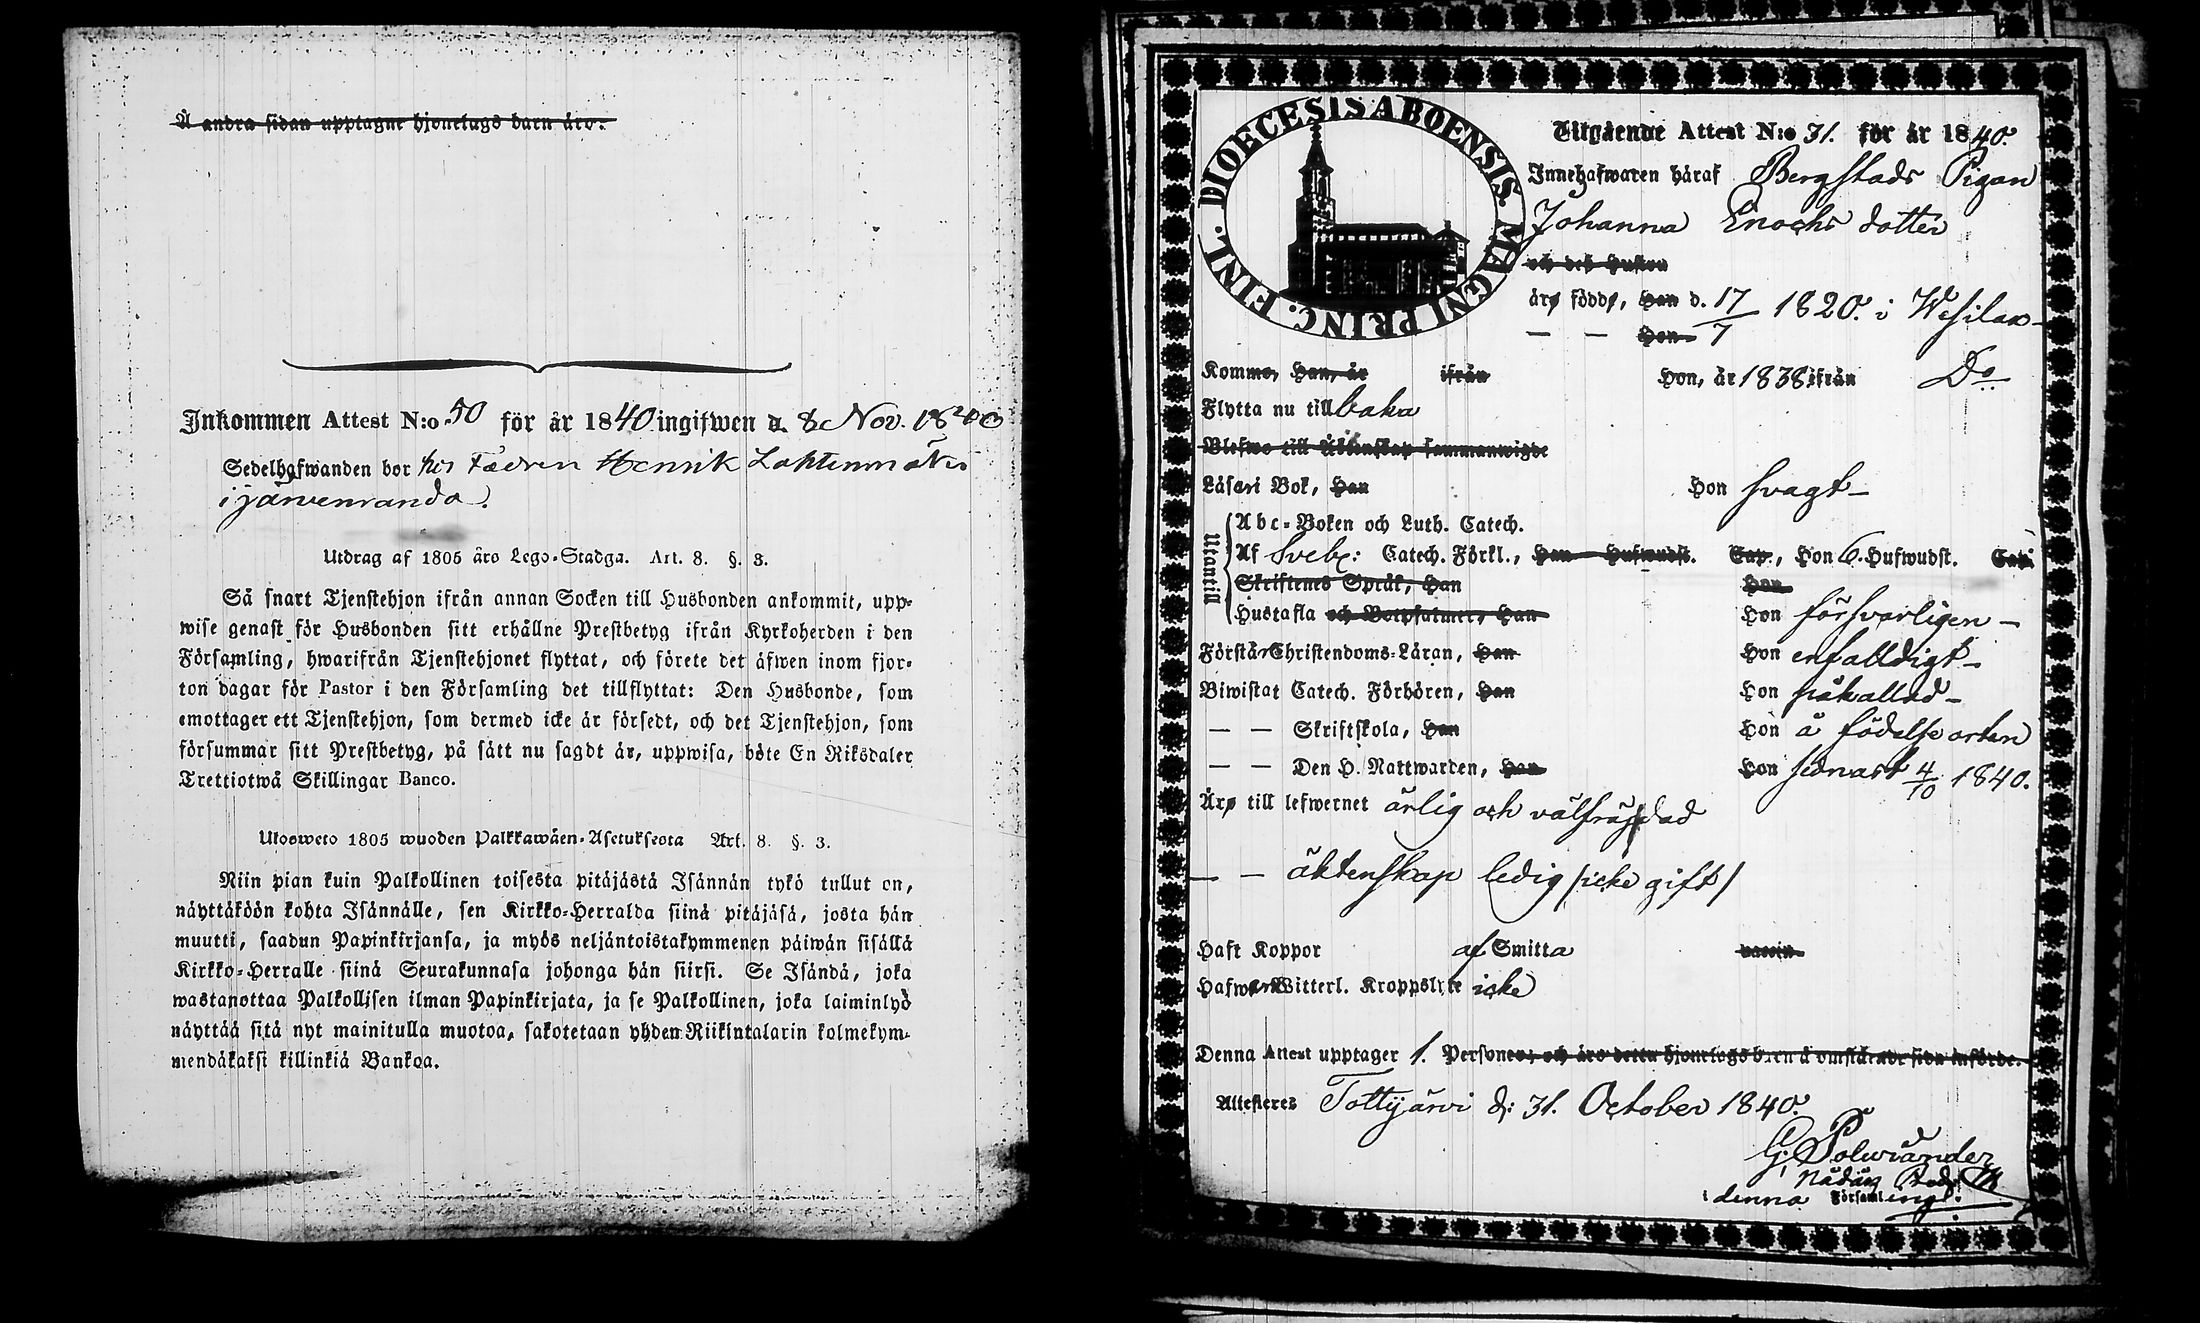 Å andra sidan upptagne hjonelags barn äro.
Inkommen Attest N:o 50 för år 1840 ingifwen d. 8 Nov. 1840
Sedelhafwanden bor hos Fadren Henrik
i järvenranda.
Utdrag af 1805 års Lego-Stadga. Art. 8. §. 3.
Så snart Tjenstehjon ifrån annan Socken till Husbonden ankommit, upp-
wise genast för Husbonden sitt erhållne Prestbetyg ifrån Kyrkoherden i den
Församling, hwarifrån Tjenstehjonet flyttat, och förete det äfwen inom fjor-
ton dagar för Pastor i den Församling det tillflyttat: Den Husbonde, som
emottager ett Tjenstehjon, som dermed icke är försedt, och det Tjenstehjon, som
försummar sitt Prestbetyg, på sätt nu sagdt är, uppwisa, böte En Riksdaler
Trettiotwå Skillingar Banco.
Ulosweto 1805 wuoden Palkkawäen-Asetuksesta Art. 8. §. 3.
Niin pian kuin Palkollinen toisesta pitäjästä Isännän tykö tullut on,
näyttäköön kohta Isännälle, sen Kirkko-Herralda siinä pitäjäsä, josta hän
muutti, saadun Papinkirjansa, ja myös neljäntoistakymmenen päiwän sisällä
Kirkko-Herralle siinä Seurakunnasa johonga hän siirsi. Se Isändä, joka
wastanottaa Palkollisen ilman Papinkirjata, ja se Palkollinen, joka laiminlyö
näyttää sitä nyt mainitulla muotoa, sakotetaan yhden Riikintalarin kolmekym-
mendäkaksi killinkiä Bankoa.
DIOECESIS ABOENSIS. MAGNI PRINC. FINL.
Utgående Attest N:o 31. för år 1840.
Innehafwaren häraf Bergstads Pigan
Johanna Enochs dotter
och deß hustru
äro födde, han d. 17/7 1820. i Wesilax
— — Hon
Komme, Han, år ifrån Hon, år 1838 ifrån Do
Flytta nu tillbaka
Blefwo till Äktenskap sammanwigde
Läser i Bok, Han Hon svagt
Utantill
Abc-Boken och Luth. Catech.
Af Sveb: Catech. Förkl., Han Hufwudst. Cap., Hon 6. Hufwudst. Cap.
Skriftenes Språk, Han Hon
Hustafla och Botpsalmer, Han Hon försvarligen
Förstår Christendoms-Läran, Han Hon enfalldigt
Biwistat Catech. Förhören, Han Hon påkallad
— — Skriftskola, Han Hon å födelseorten
— — Den H. Nattwarden, Han Hon sednast 4/10 1840.
Äro till lefwernet ärlig och välfrägdad
— — äktenskap ledig /icke gift/
Haft Koppor af Smitta vaccin
Hafwer Witterl. Kroppslyte icke
Denna Attest upptager 1. Personer, och äro detta hjonelags barn å omstående sida införde.
Attesteres Tottijärvi d: 31. October 1840.
G. Polviander
Nådår Pred
i denna Församlingl.